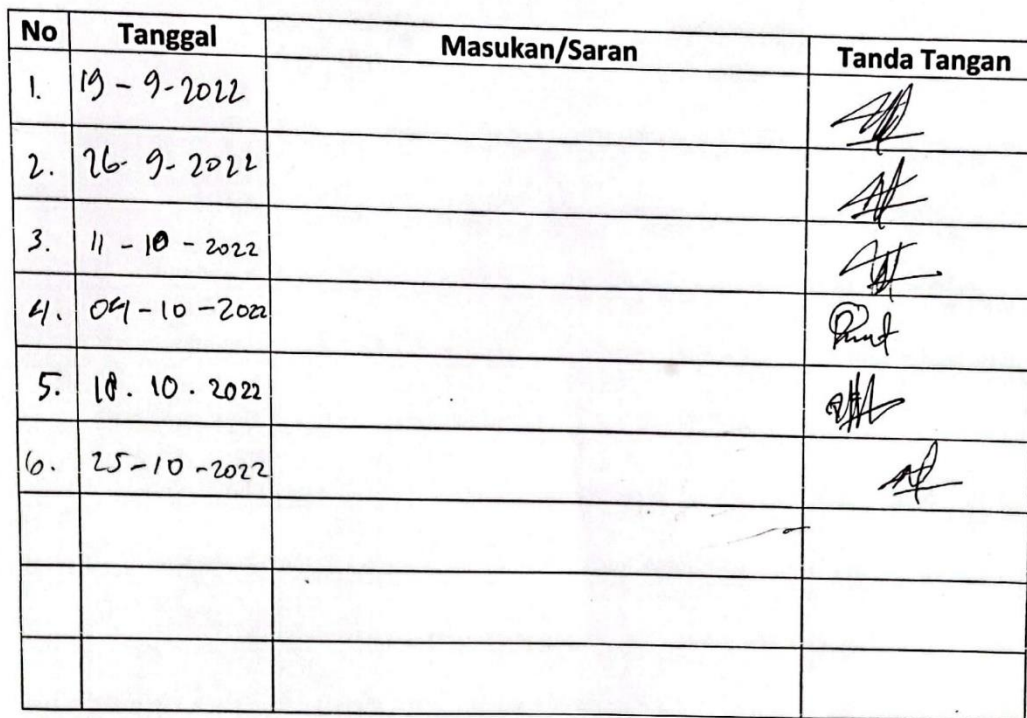 No Tanggal Masukan/Saran Tanda Tangan
1. 19 - 9 - 2022
2. 26 - 9 - 2022
3. 11 - 10 - 2022
4. 04 - 10 - 2022
5. 18 . 10 . 2022
6. 25 - 10 - 2022